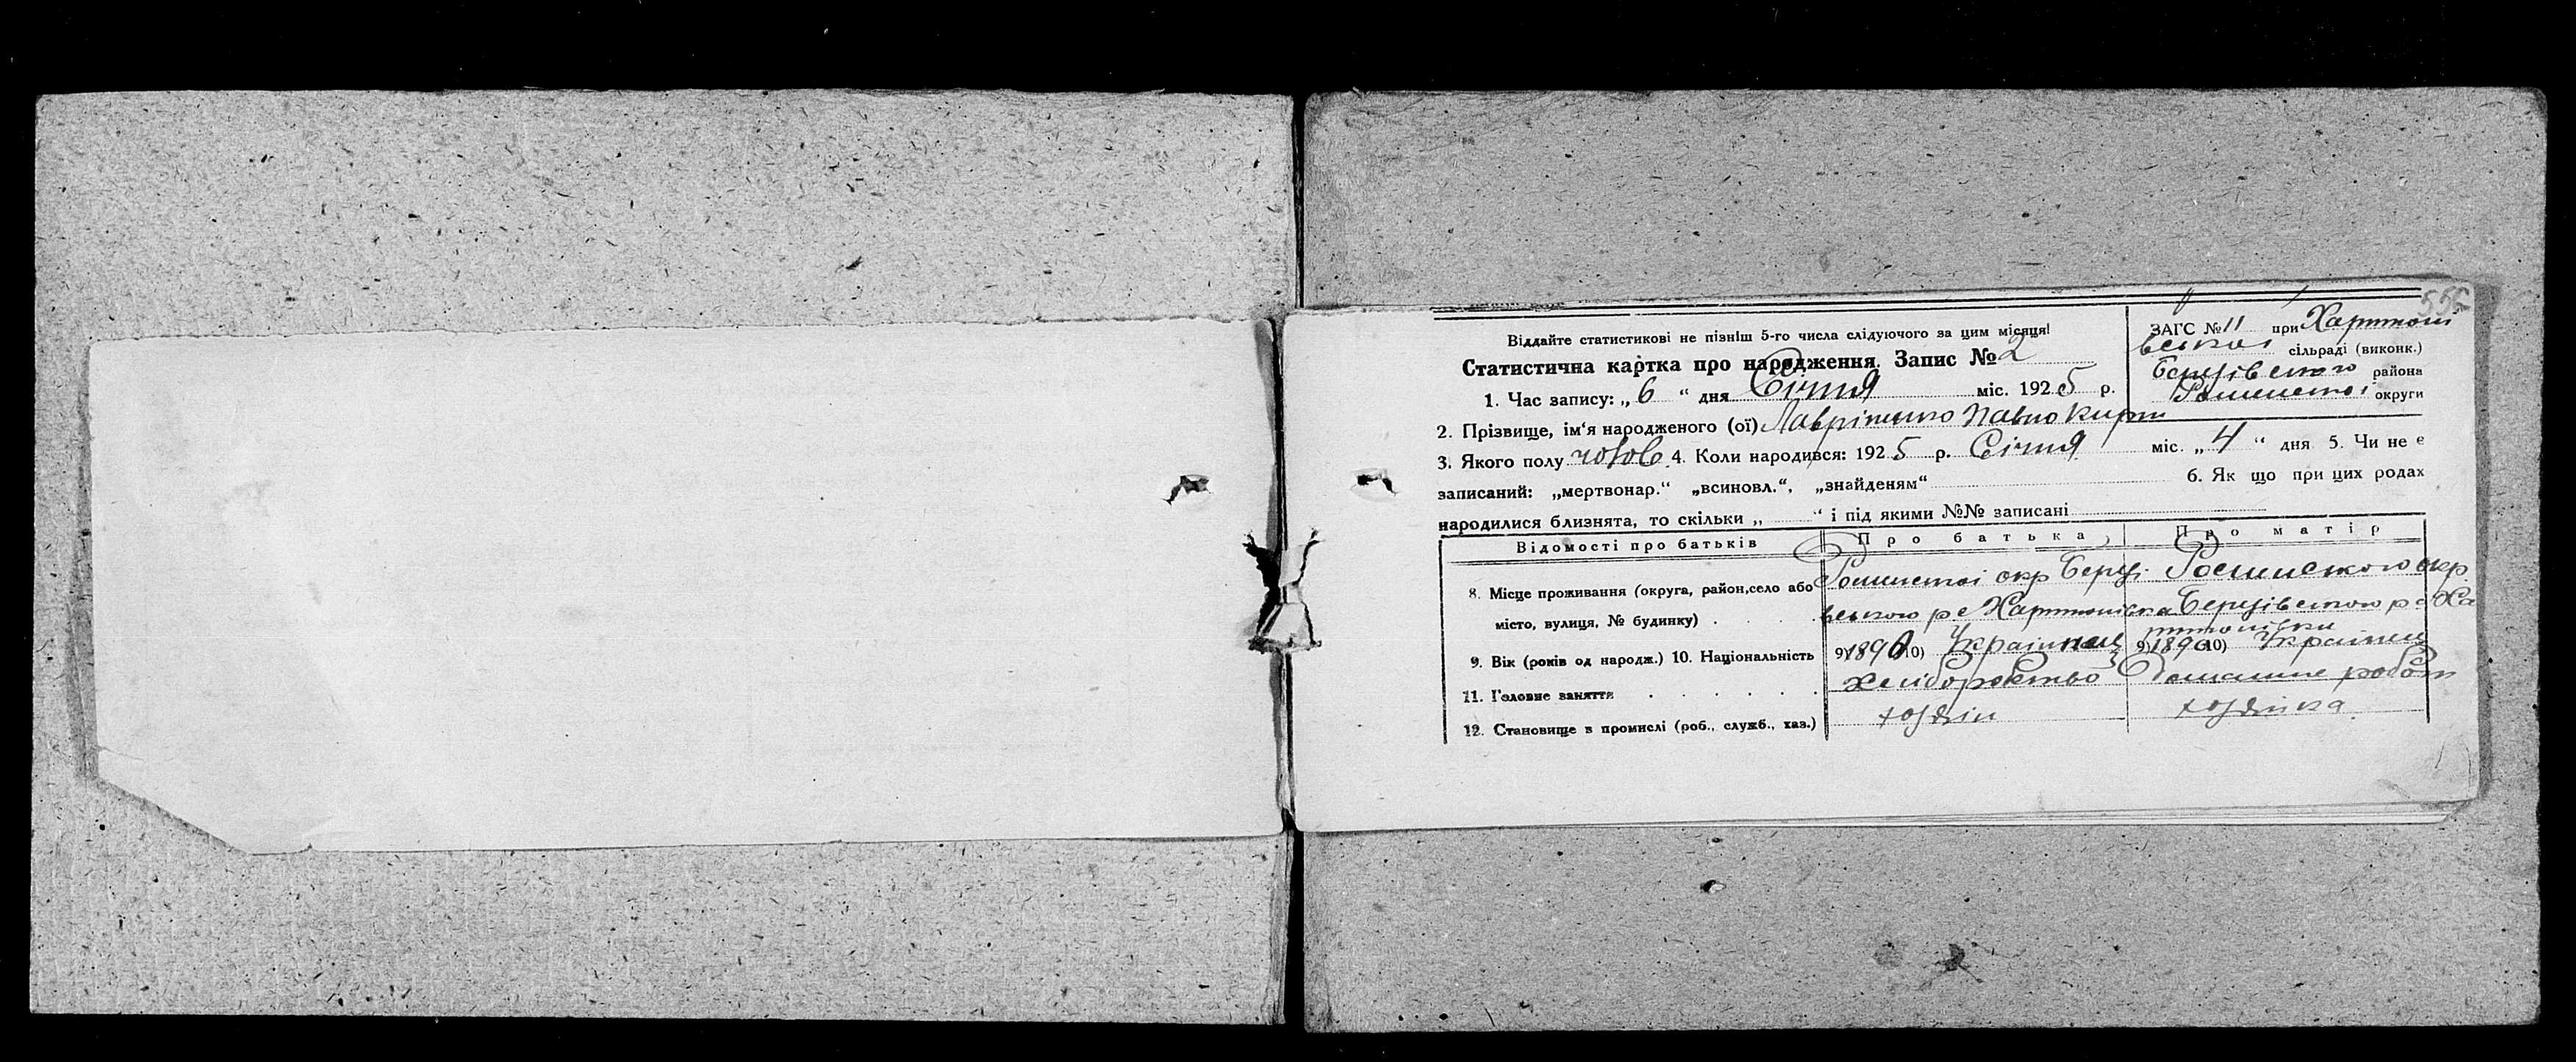 Віддайте статистикові не пізніш 5-го числа слідуючого за цим місяця!
Статистична картка про народження. Запис № 2
ЗАГС № 11 при Харитоні
вської сільраді (виконк.)
району
Роменської округи
1. Час запису: „ 6 “ дня Січня міс. 1925 р.
2. Прізвище, ім‘я народженого (ої) Павло
3. Якого полу чолов. 4. Коли народився: 1925 р. Січня міс. „ 4 “ дня 5. Чи не є
записаний: „мертвонар.“ „всиновл.“, „знайденям“ 6. Як що при цих родах
народилися близнята, то скільки „ “ і під якими №№ записані
Відомості про батьків Про батька Про матір
8. Місце проживання (округа, район, село або Роменської окр Роменського окр.
місто, вулиця, № будинку)
9. Вік (років од народж.) 10. Національність 9) 10) Українець 9) 1896 10)
11. Головне заняття Хліборобство Домашне робот
12. Становище в промислі (роб., служб., хаз.) хозяін хозяіка